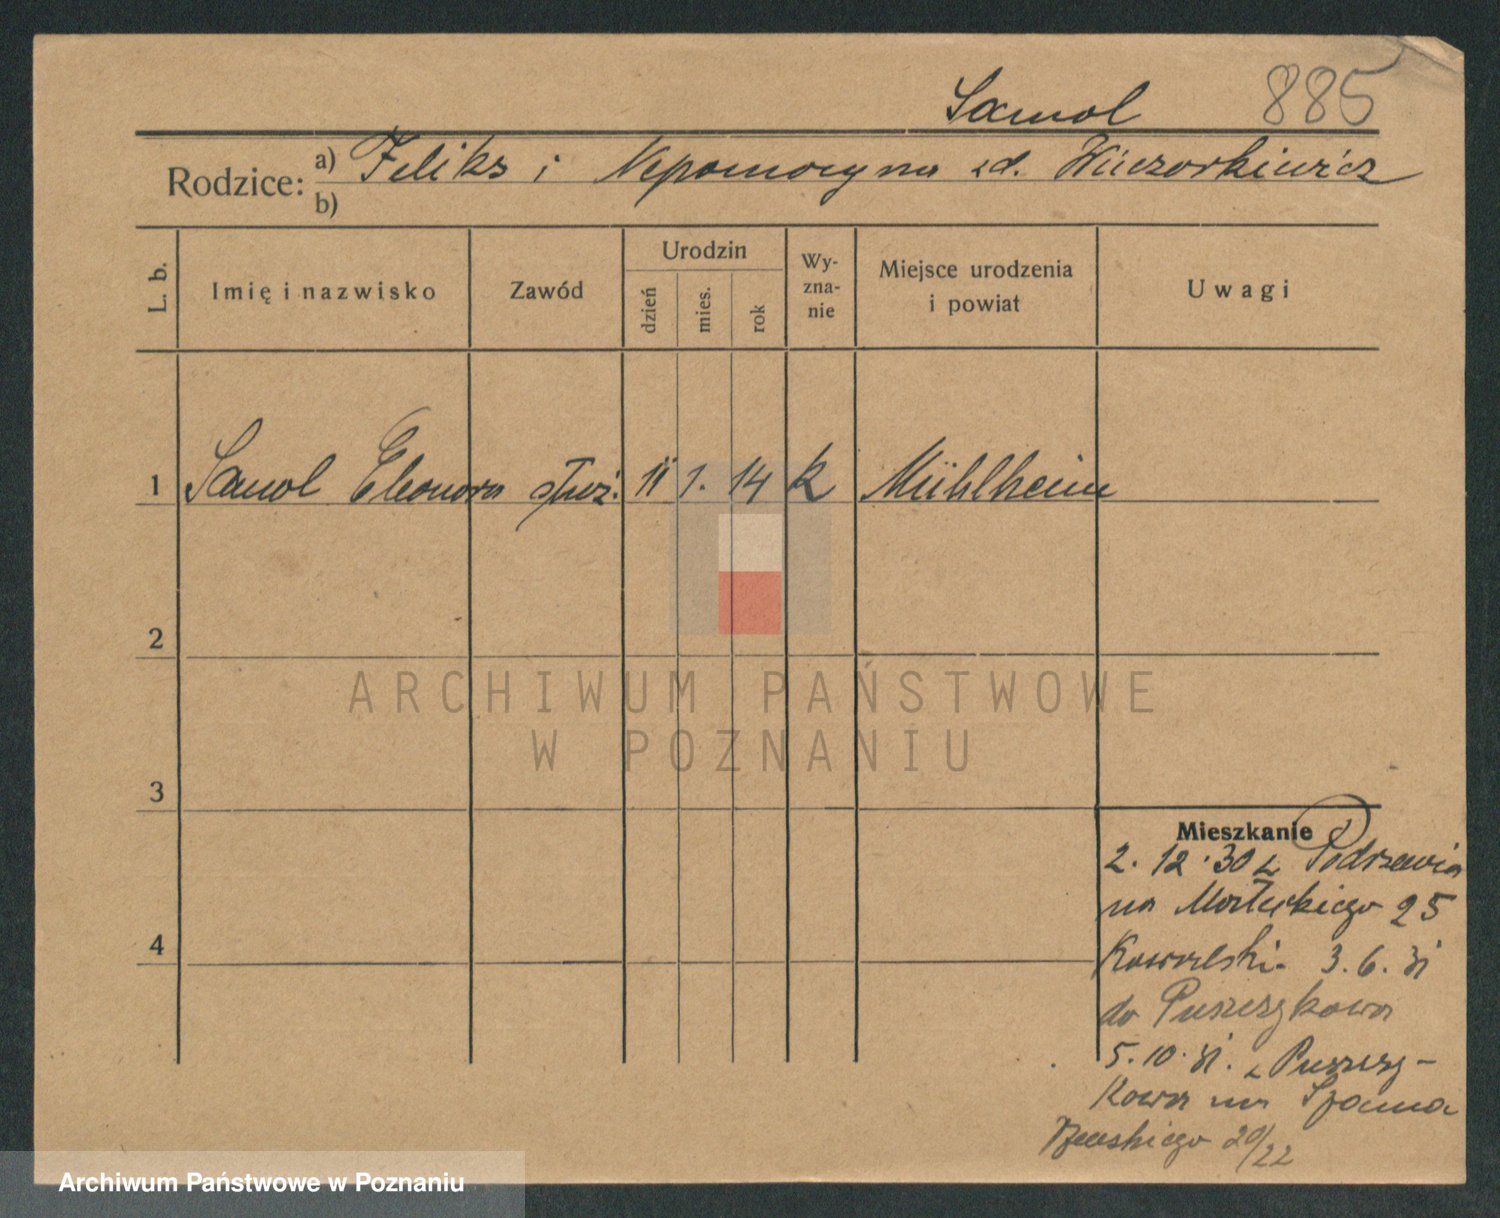 Samol 885
Rodzice: a) Feliks i Nepomocyna zd. Wieczorkiewicz
b)
L. b. Imię i nazwisko Zawód Urodzin dzień mies. rok Wyznanie Miejsce urodzenia i powiat Uwagi
1 Samol Eleonora służ. 11 1. 14 k Mühlheim
2
ARCHIWUM PAŃSTWOWE
W POZNANIU
3
Mieszkanie
2. 12. 30 z Podrzewia
na Małeckiego 25
4
Kowalski. 3. 6. 31
do Puszczykowa
5. 10. 31. z Puszczy-
kowa na
20/22
Archiwum Państwowe w Poznaniu